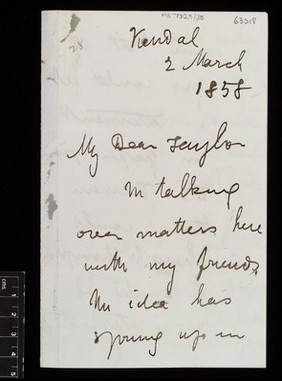 MS 7829/30
63318
28
Kendal
2 March
1858
My Dear Taylor
In talking
over matters here
with my friends
the idea has
sprung up in